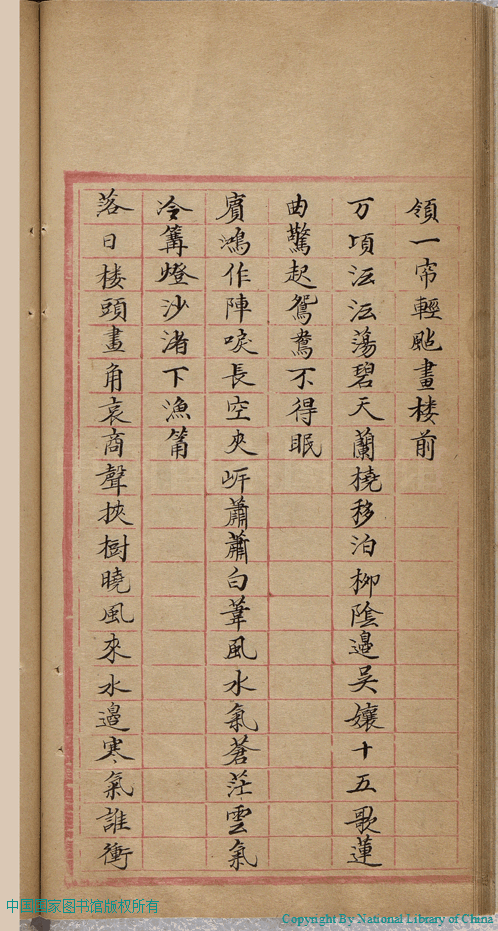 領一帘輕颭畫楼前
万頃沄沄蕩碧天蘭橈移泊柳陰邊吳孃十五歌蓮
曲驚起鴛鴦不得眠
賓鴻作陣唳長空夾岍蕭蕭白葦風水氣蒼茫雲氣
冷篝燈沙渚下漁筩
落日楼頭畫角哀商聲挾樹曉風來水邊寒氣誰衝
中国国家图书馆版权所有
Copyright By National Library of China